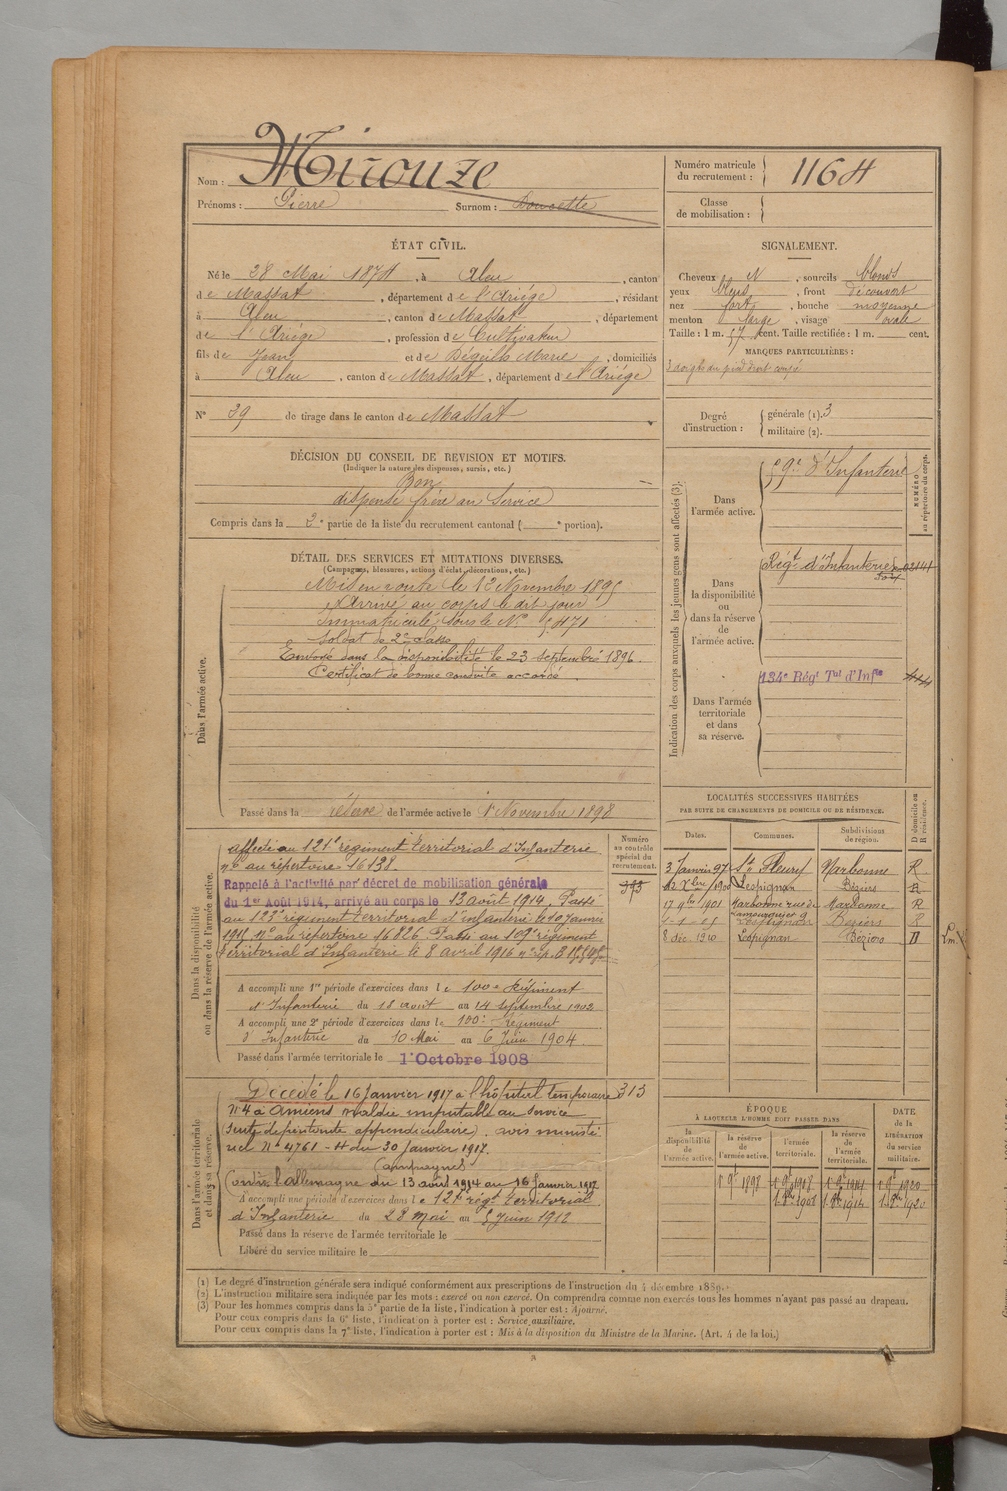 Nom : Mirouze
Prénoms : Pierre Surnom : Doucette
ÉTAT CIVIL.
Né le 28 Mai 1874, à Aleu, canton
de Massat, département de l'Ariége, résidant
à Aleu, canton de Massat, département
de l'Ariége, profession de Cultivateur
fils de Jean et de Béguilh Marie, domiciliés
à Aleu, canton de Massat, département de l'Ariége
N° 39 de tirage dans le canton de Massat
DÉCISION DU CONSEIL DE REVISION ET MOTIFS.
(Indiquer la nature des dispenses, sursis, etc.)
Bon
dispensé frère au Service
Compris dans la 2e partie de la liste du recrutement cantonal ( e portion).
DÉTAIL DES SERVICES ET MUTATIONS DIVERSES.
(Campagnes, blessures, actions d'éclat, décorations, etc.)
Dans l'armée active.
Mis en route le 12 Novembre 1895
Arrivé au corps le dit jour
Immatriculé sous le N° 5471
Soldat de 2e classe
Envoyé dans la disponibilité le 23 septembre 1896.
Certificat de bonne conduite accordé.
Passé dans la réserve de l'armée active le 1er Novembre 1898
Dans la disponibilité
ou dans la réserve de l'armée active.
affecté au 121e régiment territorial d'Infanterie
n° au répertoire 16138.
Rappelé à l'activité par décret de mobilisation générale
du 1er Août 1914, arrivé au corps le 13 août 1914. Passé
au 123e régiment territorial d'infanterie le 10 Janvier
1915 N° au répertoire 16826. Passé au 109e régiment
territorial d'Infanterie le 8 avril 1916 n° rép.
A accompli une 1re période d'exercices dans le 100e Régiment
d'Infanterie du 18 août au 14 septembre 1902
A accompli une 2e période d'exercices dans le 100e régiment
d'Infanterie du 10 Mai au 6 Juin 1904.
Passé dans l'armée territoriale le 1er Octobre 1908
Numéro
au contrôle
spécial du
recrutement.
393
313
Dans l'armée territoriale
et dans sa réserve.
Décédé le 16 Janvier 1917 à l'hôpital temporaire
N°4 à Amiens maladie imputable au service
appendiculaire). avis ministé-
riel N° 4761-H du 30 Janvier 1917.
Campagnes
Contre l'allemagne du 13 août 1914 au 16 Janvier 1917.
A accompli une période d'exercices dans le 121e régt territorial
d'Infanterie du 28 Mai au 5 Juin 1912
Passé dans la réserve de l'armée territoriale le
Libéré du service militaire le
Numéro matricule
du recrutement : 1164
Classe
de mobilisation :
SIGNALEMENT.
Cheveux N, sourcils blonds
yeux bleus, front découvert
nez fort, bouche moyenne
menton large, visage ovale
Taille : 1 m. 57 cent. Taille rectifiée : 1 m. cent.
MARQUES PARTICULIÈRES :
3 doigts du pied droit coupé
Degré
d'instruction :
générale (1). 3
militaire (2).
Indication des corps auxquels les jeunes gens sont affectés (3).
NUMÉRO
au répertoire du corps.
Dans
l'armée active.
59e d'Infanterie
Dans
la disponibilité
ou
dans la réserve
de
l'armée active.
Régt d'Infanterie 02141
Dans l'armée
territoriale
et dans
sa réserve.
134e Régt Tal d'Infie
LOCALITÉS SUCCESSIVES HABITÉES
PAR SUITE DE CHANGEMENTS DE DOMICILE OU DE RÉSIDENCE.
Dates. Communes. Subdivisions
de région. D domicile ou
R résidence.
3 Janvier 97 Fleury Narbonne R
12 Xbre 1900 Lespignan Béziers R
17 9bre 1901 Narbonne rue de Narbonne R
Lespignan Beziers R
8 déc. 1910 Lespignan Béziers D
ÉPOQUE
À LAQUELLE L'HOMME DOIT PASSER DANS
la
disponibilité
de
l'armée active.
la réserve
de
l'armée active.
l'armée
territoriale.
la réserve
de
l'armée
territoriale.
DATE
de la
LIBÉRATION
du service
militaire.
1 9bre 1898
1 8bre 1908 1 8bre 1914 1 8bre 1920
(1) Le degré d'instruction générale sera indiqué conformément aux prescriptions de l'instruction du 4 décembre 1889.
(2) L'instruction militaire sera indiquée par les mots : exercé ou non exercé. On comprendra comme non exercés tous les hommes n'ayant pas passé au drapeau.
(3) Pour les hommes compris dans la 5e partie de la liste, l'indication à porter est : Ajourné.
Pour ceux compris dans la 6e liste, l'indication à porter est : Service auxiliaire.
Pour ceux compris dans la 7e liste, l'indication à porter est : Mis à la disposition du Ministre de la Marine. (Art. 4 de la loi.)